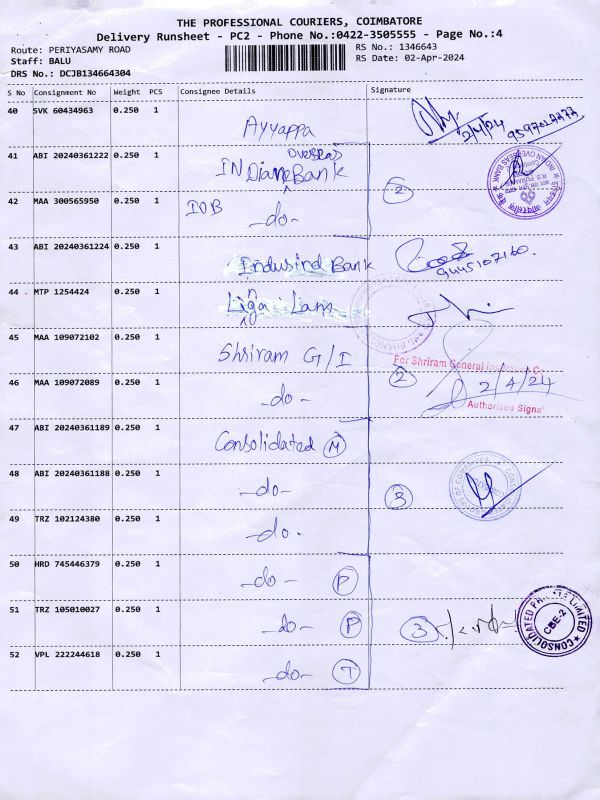 THE PROFESSIONAL COURIERS, COIMBATORE
Delivery Runsheet - PC2 - Phone No.:0422-3505555 - Page No.:4
Route: PERIYASAMY ROAD
Staff: BALU
DRS No.: DCJB134664304
RS No.: 1346643
RS Date: 02-Apr-2024
S No Consignment No Weight PCS Consignee Details Signature
40 SVK 60434963 0.250 1 Ayyappa 2/4/24
41 ABI 20240361222 0.250 1 INDian Overseas Bank
INDIAN OVERSEAS BANK
42 MAA 300565950 0.250 1 IOB -do- 2
43 ABI 20240361224 0.250 1 Indusind Bank 9445107160.
44 MTP 1254424 0.250 1
45 MAA 109072102 0.250 1 Shriram G/I
For Shriram General
46 MAA 109072089 0.250 1 -do- 2 2/4/24
Authorised Signa
47 ABI 20240361189 0.250 1 Consolidated M
48 ABI 20240361188 0.250 1 -do- 3
49 TRZ 102124380 0.250 1 -do-
50 HRD 745446379 0.250 1 -do- P
51 TRZ 105010027 0.250 1 -do- P 3
CONSOLIDATED PRIVATE LIMITED
CBE-2
52 VPL 222244618 0.250 1 -do- T